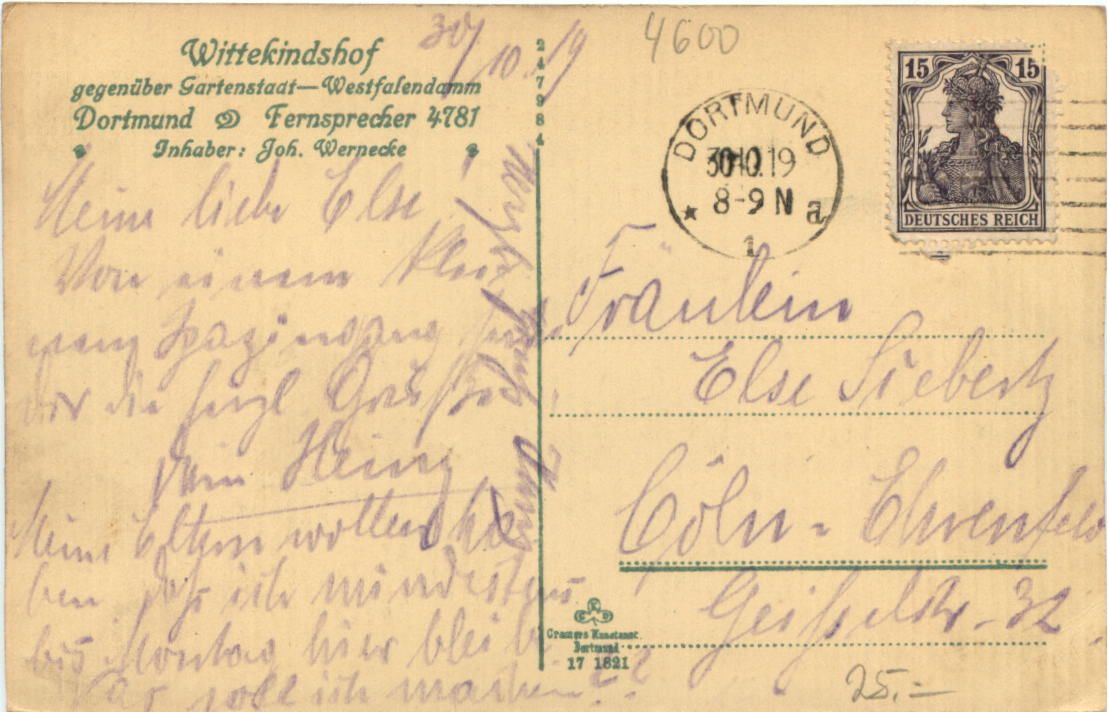 Wittekindshof
gegenüber Gartenstadt—Westfalendamm
Dortmund Fernsprecher 4781
Inhaber: Joh. Wernecke
30/10.19
4600
2 4 7 9 8 4
DORTMUND
30.10.19
8-9 N
a
1
15 15
DEUTSCHES REICH
Meine liebe Else!
Von einem klei-
nen
wir die herzl Grüße,
Dein Heinz
Meine Eltern wollen ha-
ben daß ich mindestens
bis Montag hier bleibe
Was soll ich machen??
Fräulein
Else Siebertz
Cöln-Ehrenfeld
Geisselstr. 32
Cramers Kunstanst.
Dortmund
17 1821
25.-